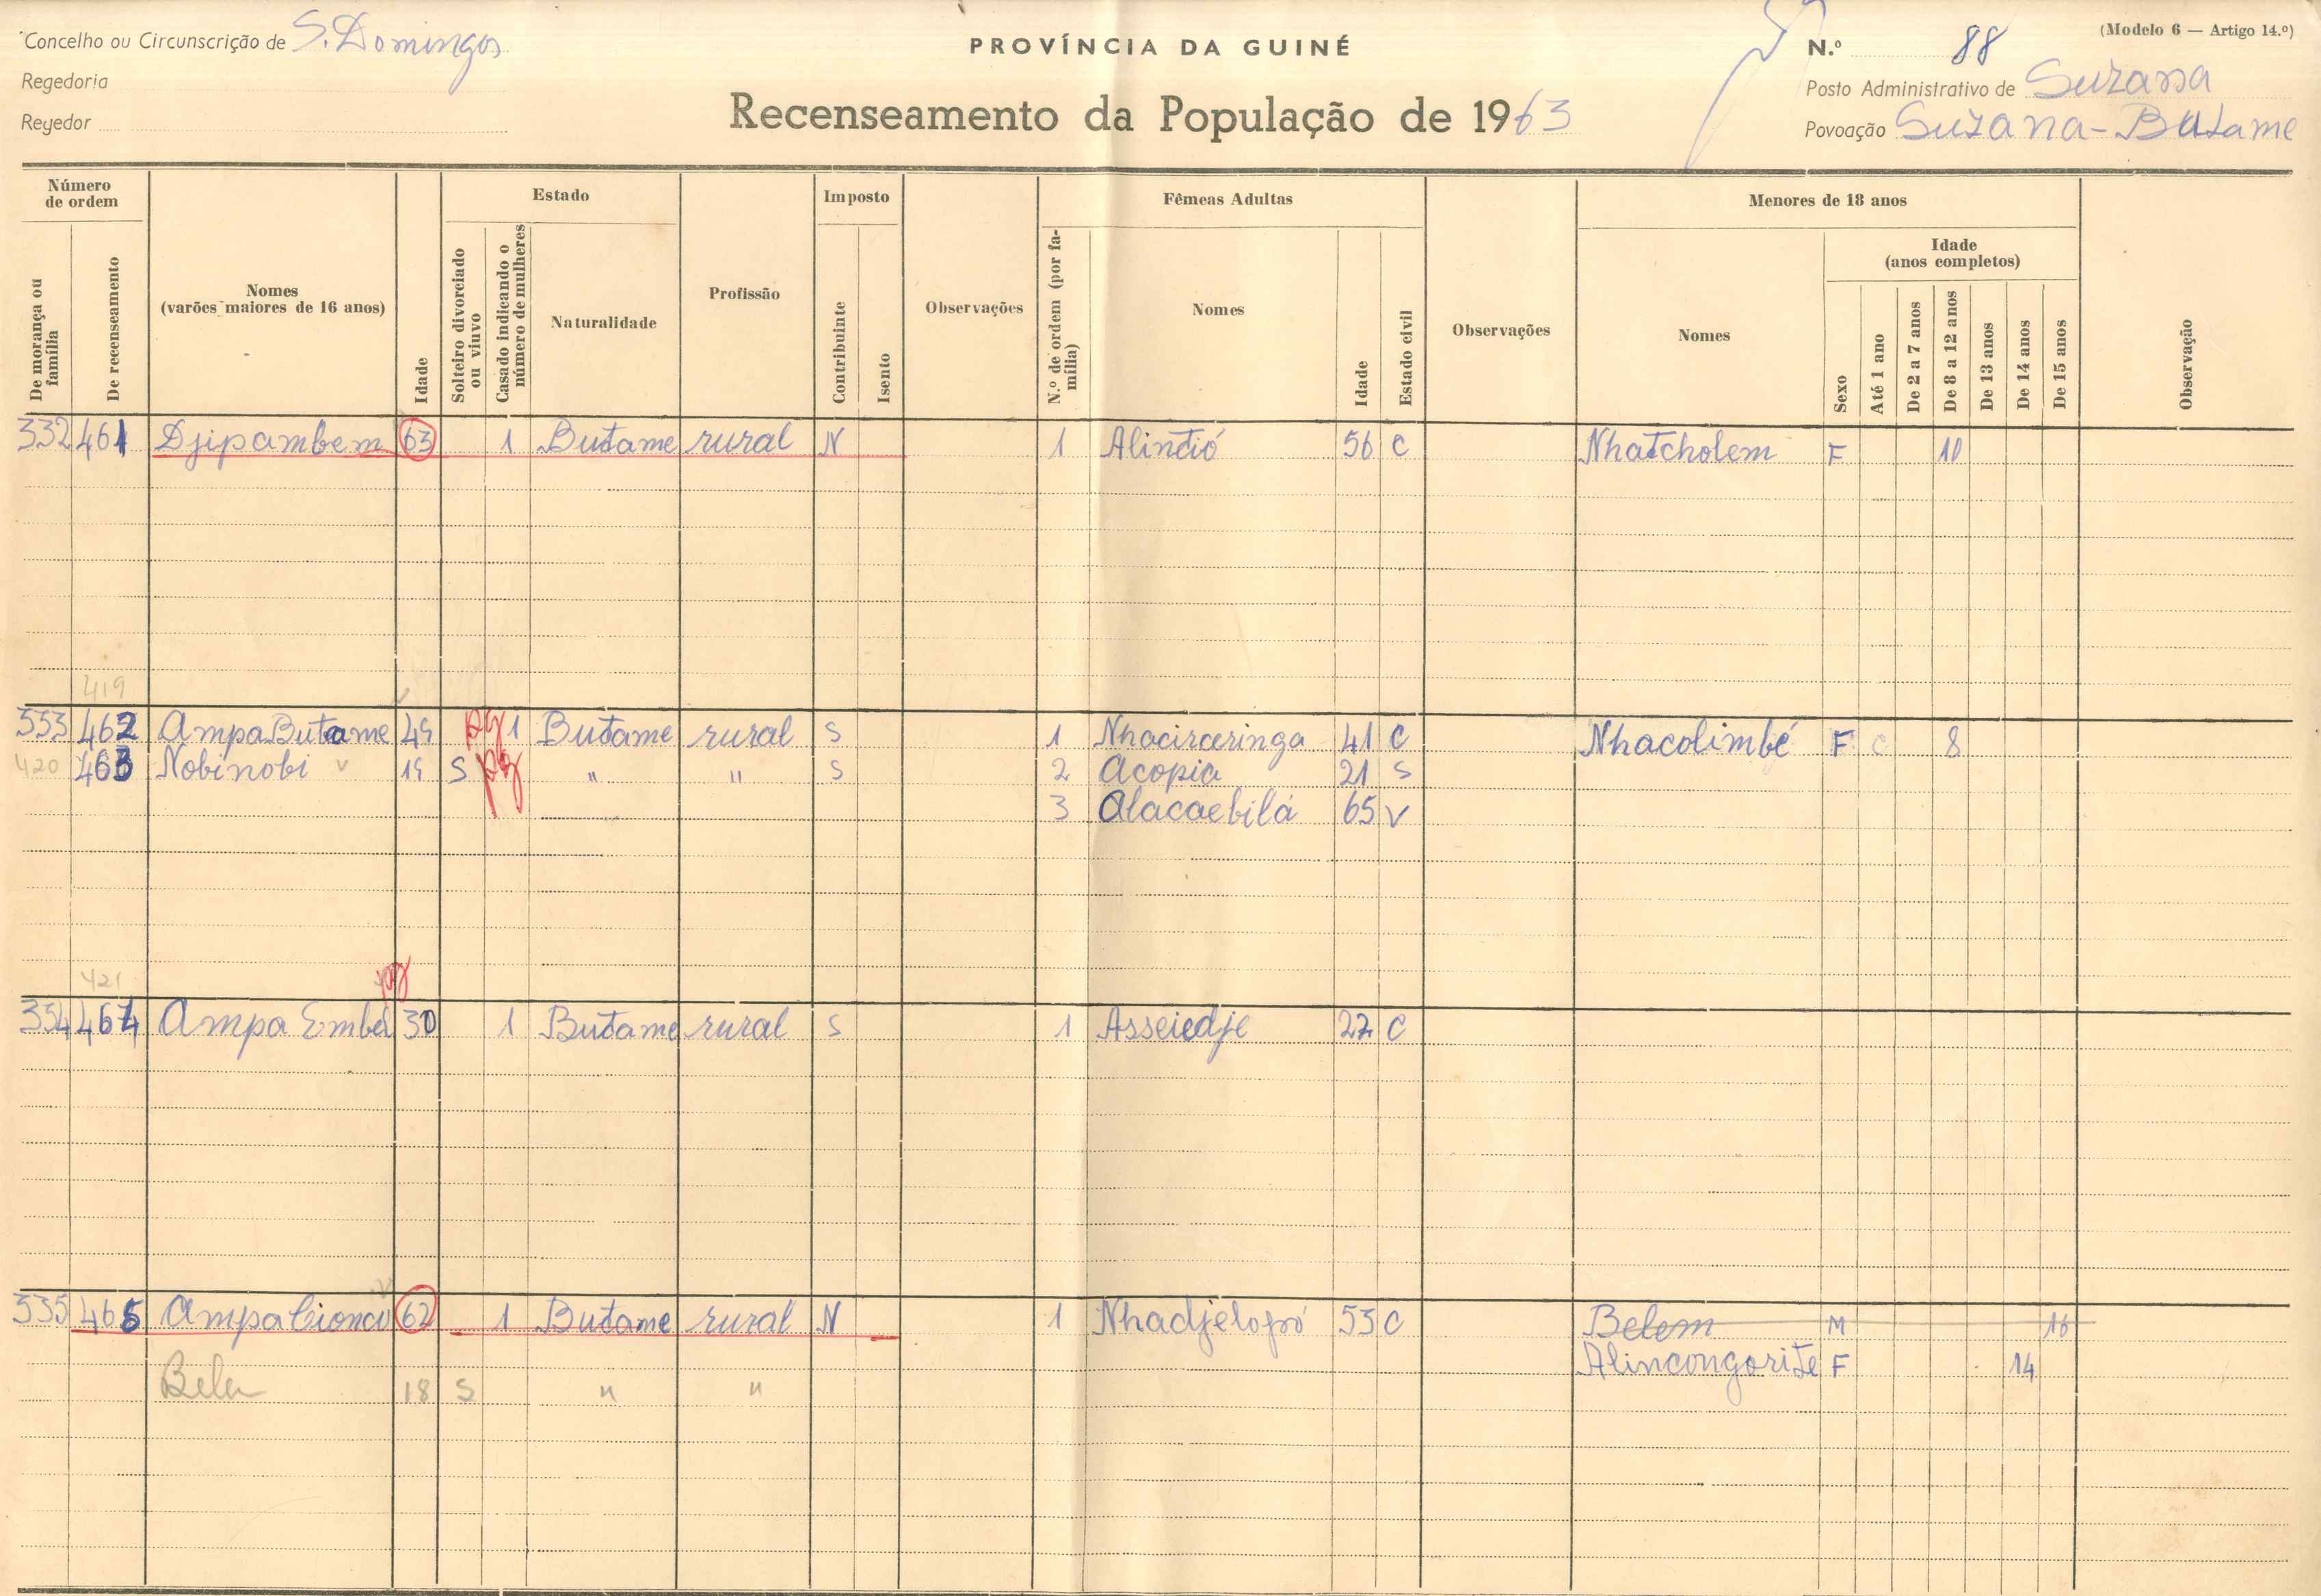 Concelho ou Circunscrição de S. Domingos
Regedoria
Regedor
PROVÍNCIA DA GUINÉ
Recenseamento da População de 1963
(Modelo 6 — Artigo 14.º)
N.º 88
Posto Administrativo de Suzana
Povoação Suzana - Butame
Número de ordem
De morança ou família
De recenseamento
Nomes (varões maiores de 16 anos)
Idade
Estado
Solteiro divorciado ou viuvo
Casado indicando o número de mulheres
Naturalidade
Profissão
Imposto
Contribuinte
Isento
Observações
Fêmeas Adultas
N.º de ordem (por família)
Nomes
Idade
Estado civil
Observações
Menores de 18 anos
Nomes
Sexo
Idade (anos completos)
Até 1 ano
De 2 a 7 anos
De 8 a 12 anos
De 13 anos
De 14 anos
De 15 anos
Observação
332 461 Djipambem 63 1 Butame rural N 1 Alindió 56 C Nhatcholem F 10
419
333 462 Ampa Butame 49 pg 1 Butame rural S 1 Nhacirceringa 41 C Nhacolimbé F C 8
420 463 Nobinobi 19 S pg " " S 2 Acopia 21 S
3 Alacaebilá 65 V
421 pg
334 464 Ampa Embá 30 1 Butame rural S 1 Asseiedje 22 C
335 465 Ampa Cioncu 62 1 Butame rural N 1 Nhadjelopó 53 C Belem M 16
Alincongorite F 14
Belem 18 S " "